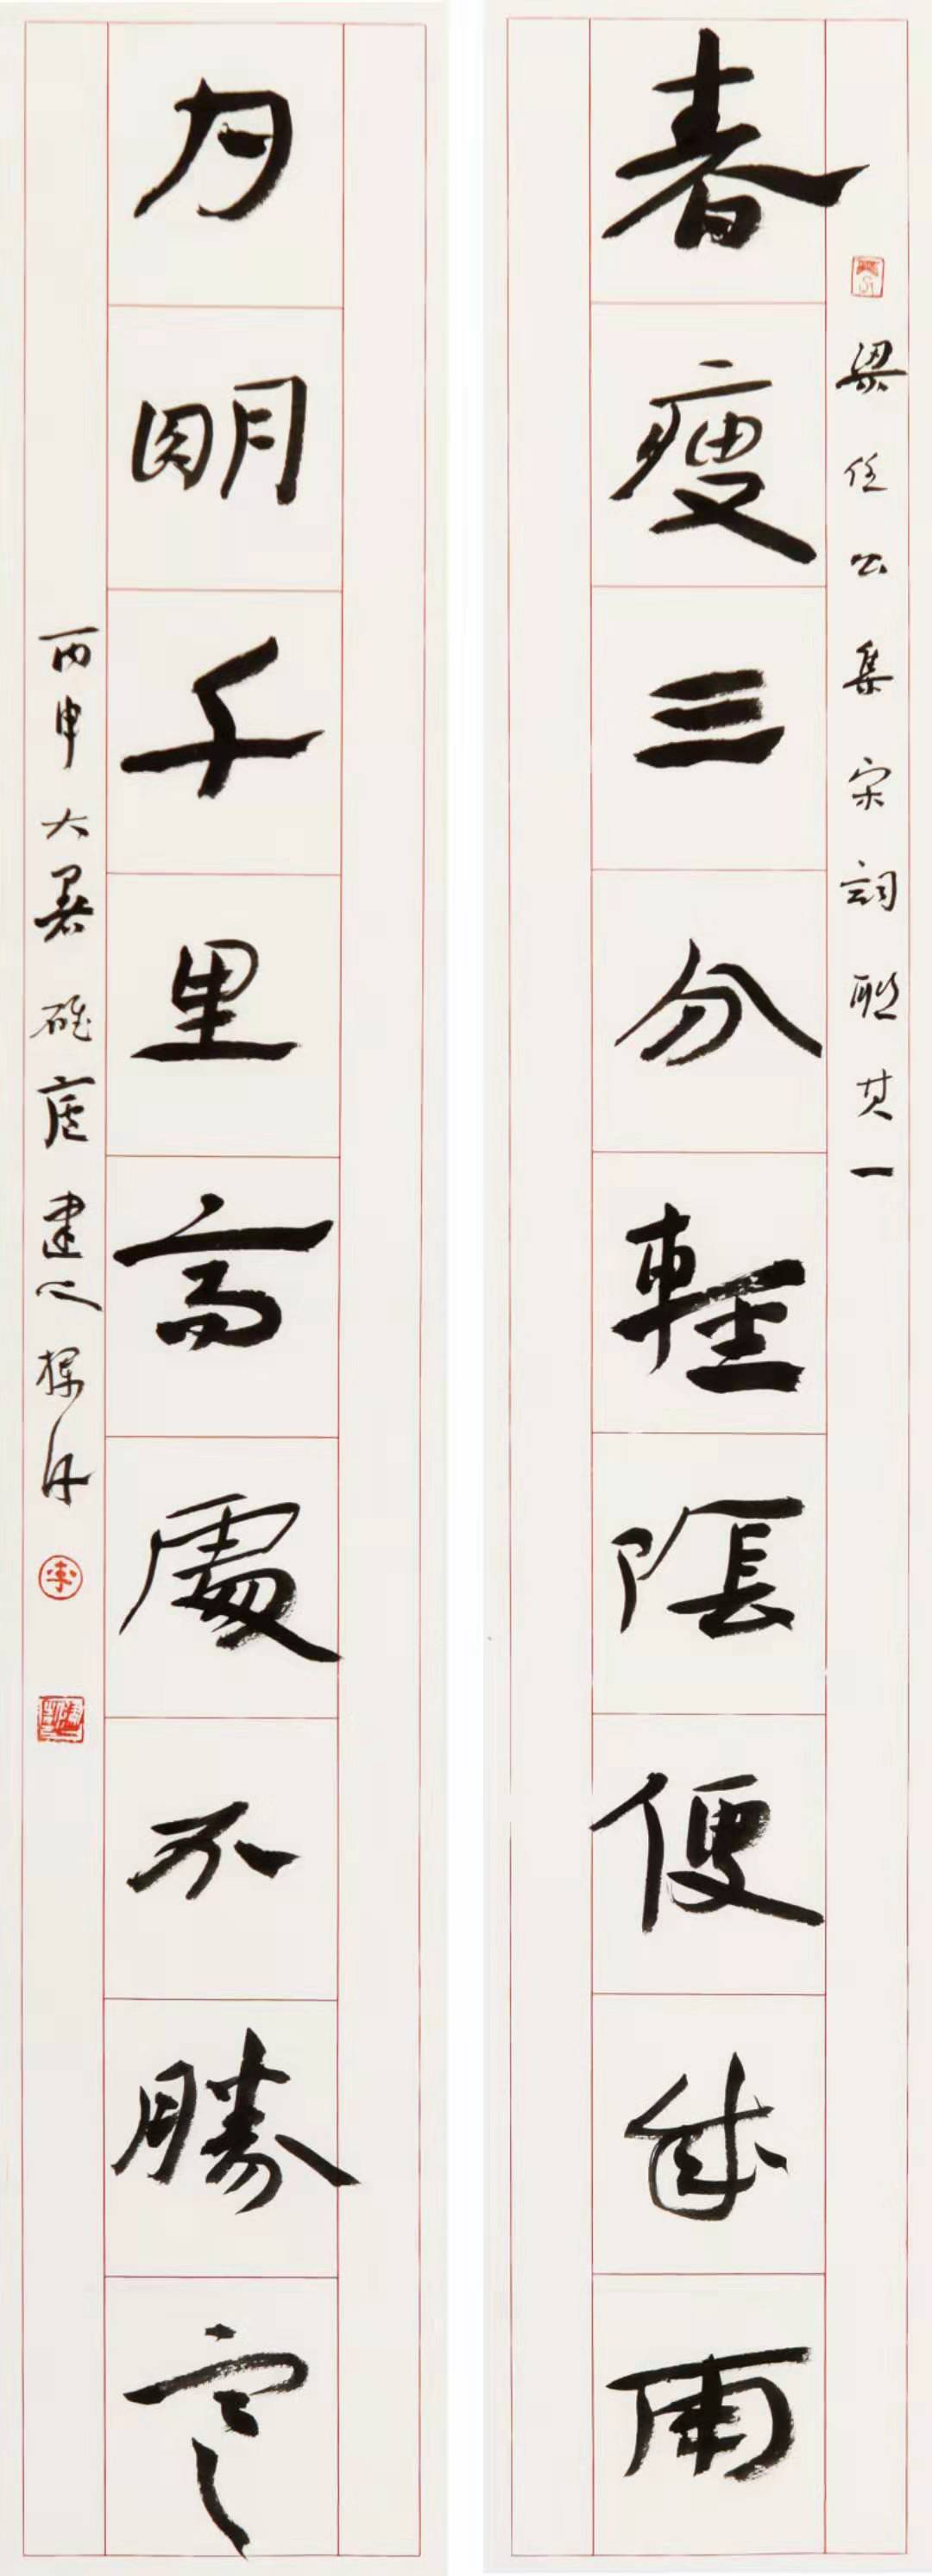 梁任公集宋詞聯其一
春瘦三分輕陰便成雨
月明千里高處不勝寒
丙申大暑建揮汗